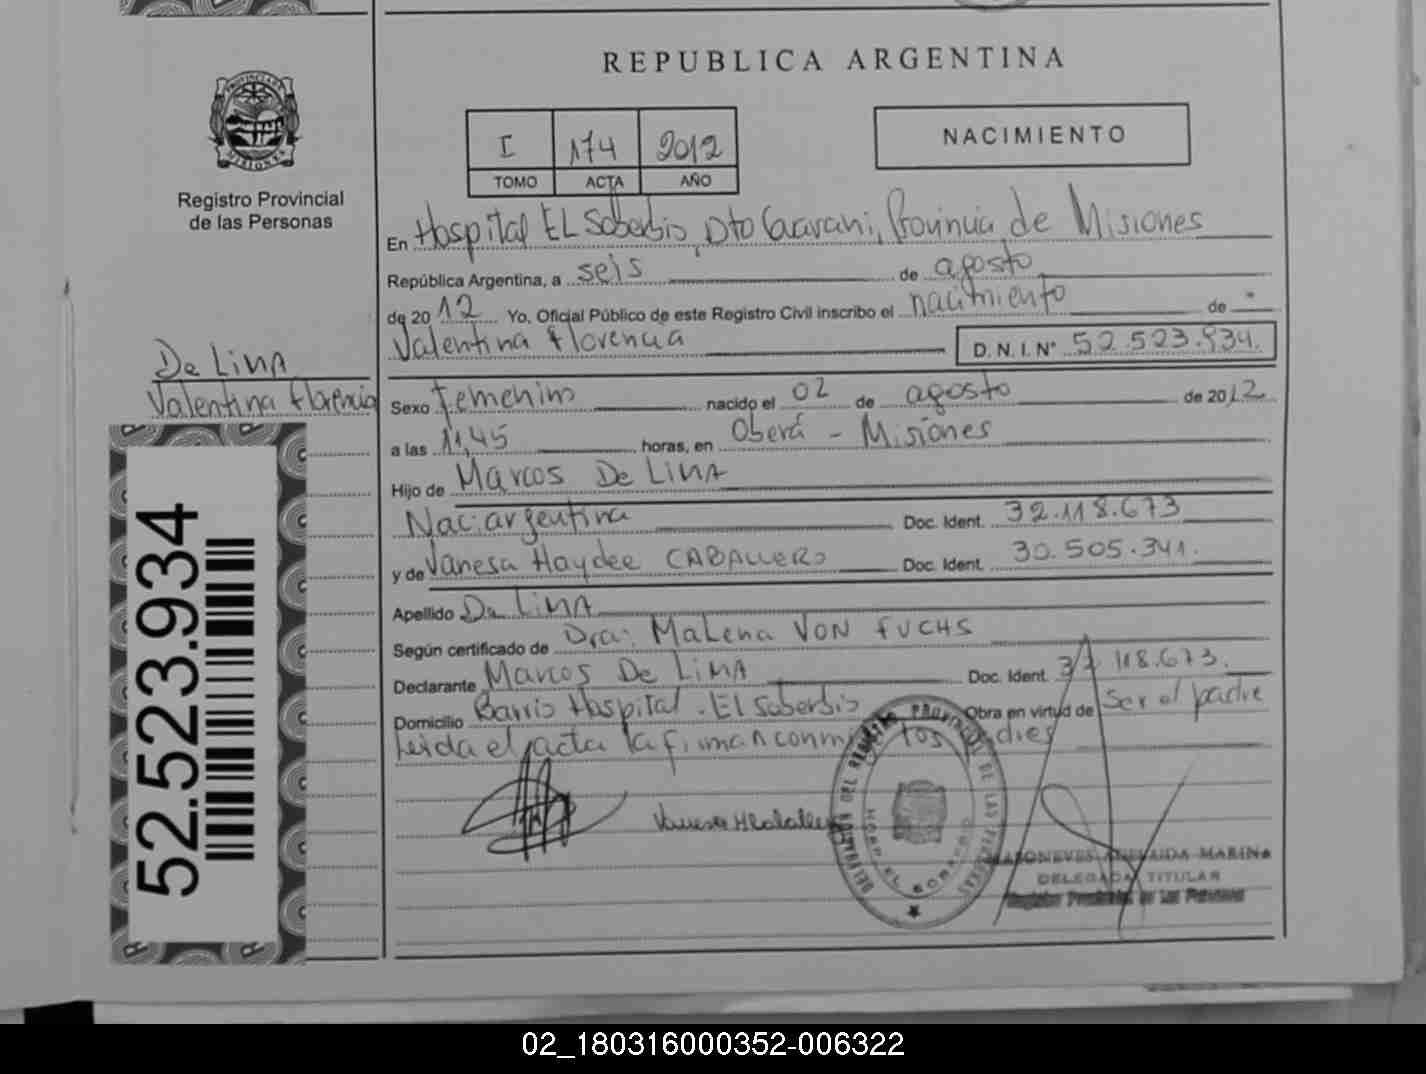 REPUBLICA ARGENTINA
I 174 2012
TOMO ACTA AÑO
NACIMIENTO
PROVINCIA DE
MISIONES
Registro Provincial
de las Personas
De LimA
Valentina Florencia
52.523.934
En Hospital EL Soberbio, Dto Guarani, Provincia de Misiones
República Argentina, a seis de agosto
de 2012 Yo, Oficial Público de este Registro Civil inscribo el nacimiento de
Valentina Florencia D.N.I. N° 52.523.934.
Sexo femenino nacido el 02 de agosto de 2012
a las 11,45 horas, en Oberá - Misiones
Hijo de Marcos De LimA
Nac: argentina Doc. Ident. 32.118.673
y de Vanesa Haydee CABALLERO Doc. Ident. 30.505.341.
Apellido De LimA
Según certificado de Dra: Malena VON FUCHS
Declarante Marcos De LimA Doc. Ident. 32 118.673.
Domicilio Barrio Hospital - El Soberbio Obra en virtud de Ser el padre
Leida el acta la firman conmigo los
DELEGADA TITULAR
Registro Provincial de las Personas
02_180316000352-006322